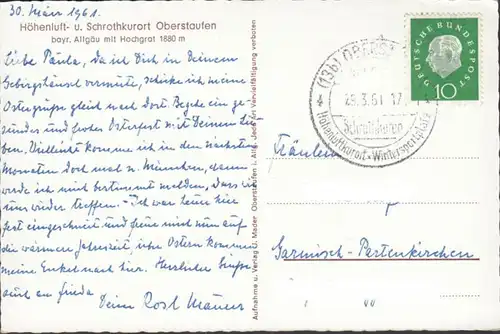 30. März 1961.
Höhenluft- u. Schrothkurort Oberstaufen
bayr. Allgäu mit Hochgrat 1880 m
Liebe Paula, da ich Dich in Deinem
Gebirgshäusel vermute, schicke ich meine
Ostergrüße gleich nach dort. Begehe ein ge-
sundes und frohes Osterfest mit Deinen Lie-
ben. Vielleicht komme ich in den nächsten
Monaten doch mal n. München, dann
würde ich mich bestimmt melden, dass wir
uns wieder treffen. - Ich war heuer hier
fest eingeschneit und freue mich nun auf
die wärmere Jahreszeit. Über Ostern kommen
meine Enkel nach hier. Herzliche Grüße
auch an Frieda
Deine Rosl
Aufnahme u. Verlag U. Mader Oberstaufen i. Allg. Jede Art Vervielfältigung verboten
(13b)
3.61
Schrothkuren
Höhenluftkurort · Wintersportplatz
DEUTSCHE BUNDESPOST
10
Fräulein
Garmisch-Partenkirchen